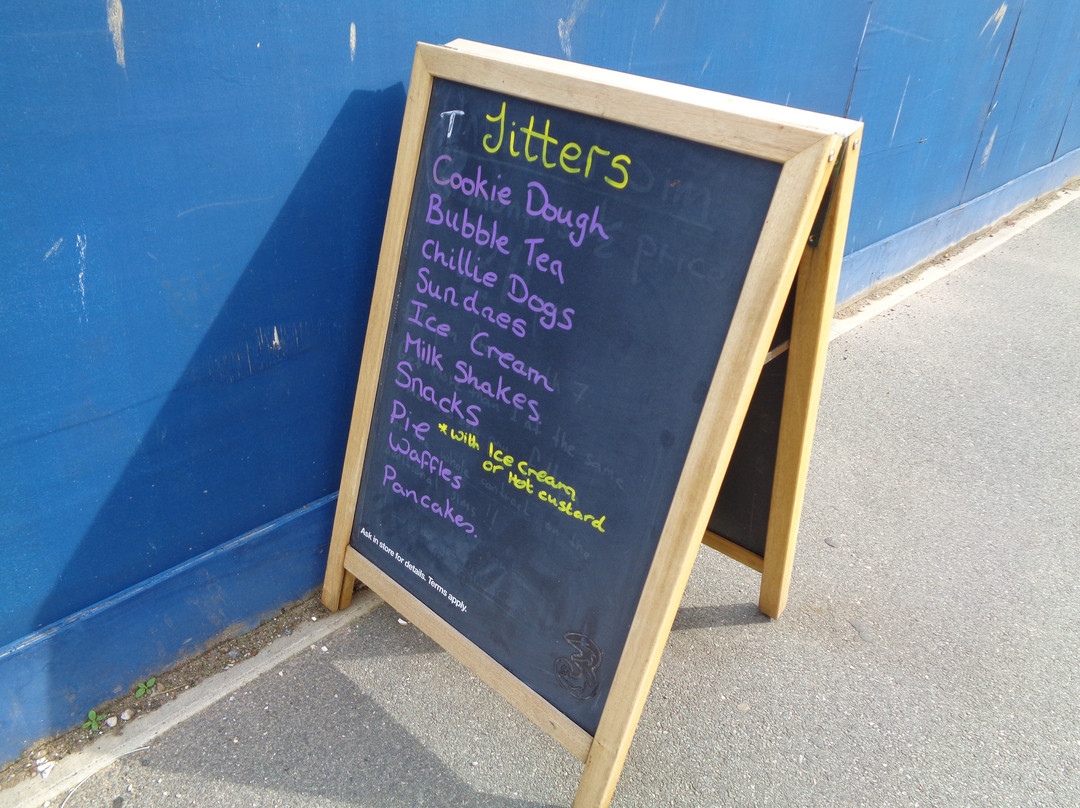 T Jitters
Cookie Dough
Bubble Tea
Chillie Dogs
Sundaes
Ice Cream
Milk Shakes
Snacks
Pie *with Ice Cream
or Hot custard
Waffles
Pancakes.
Ask in store for details. Terms apply.
3